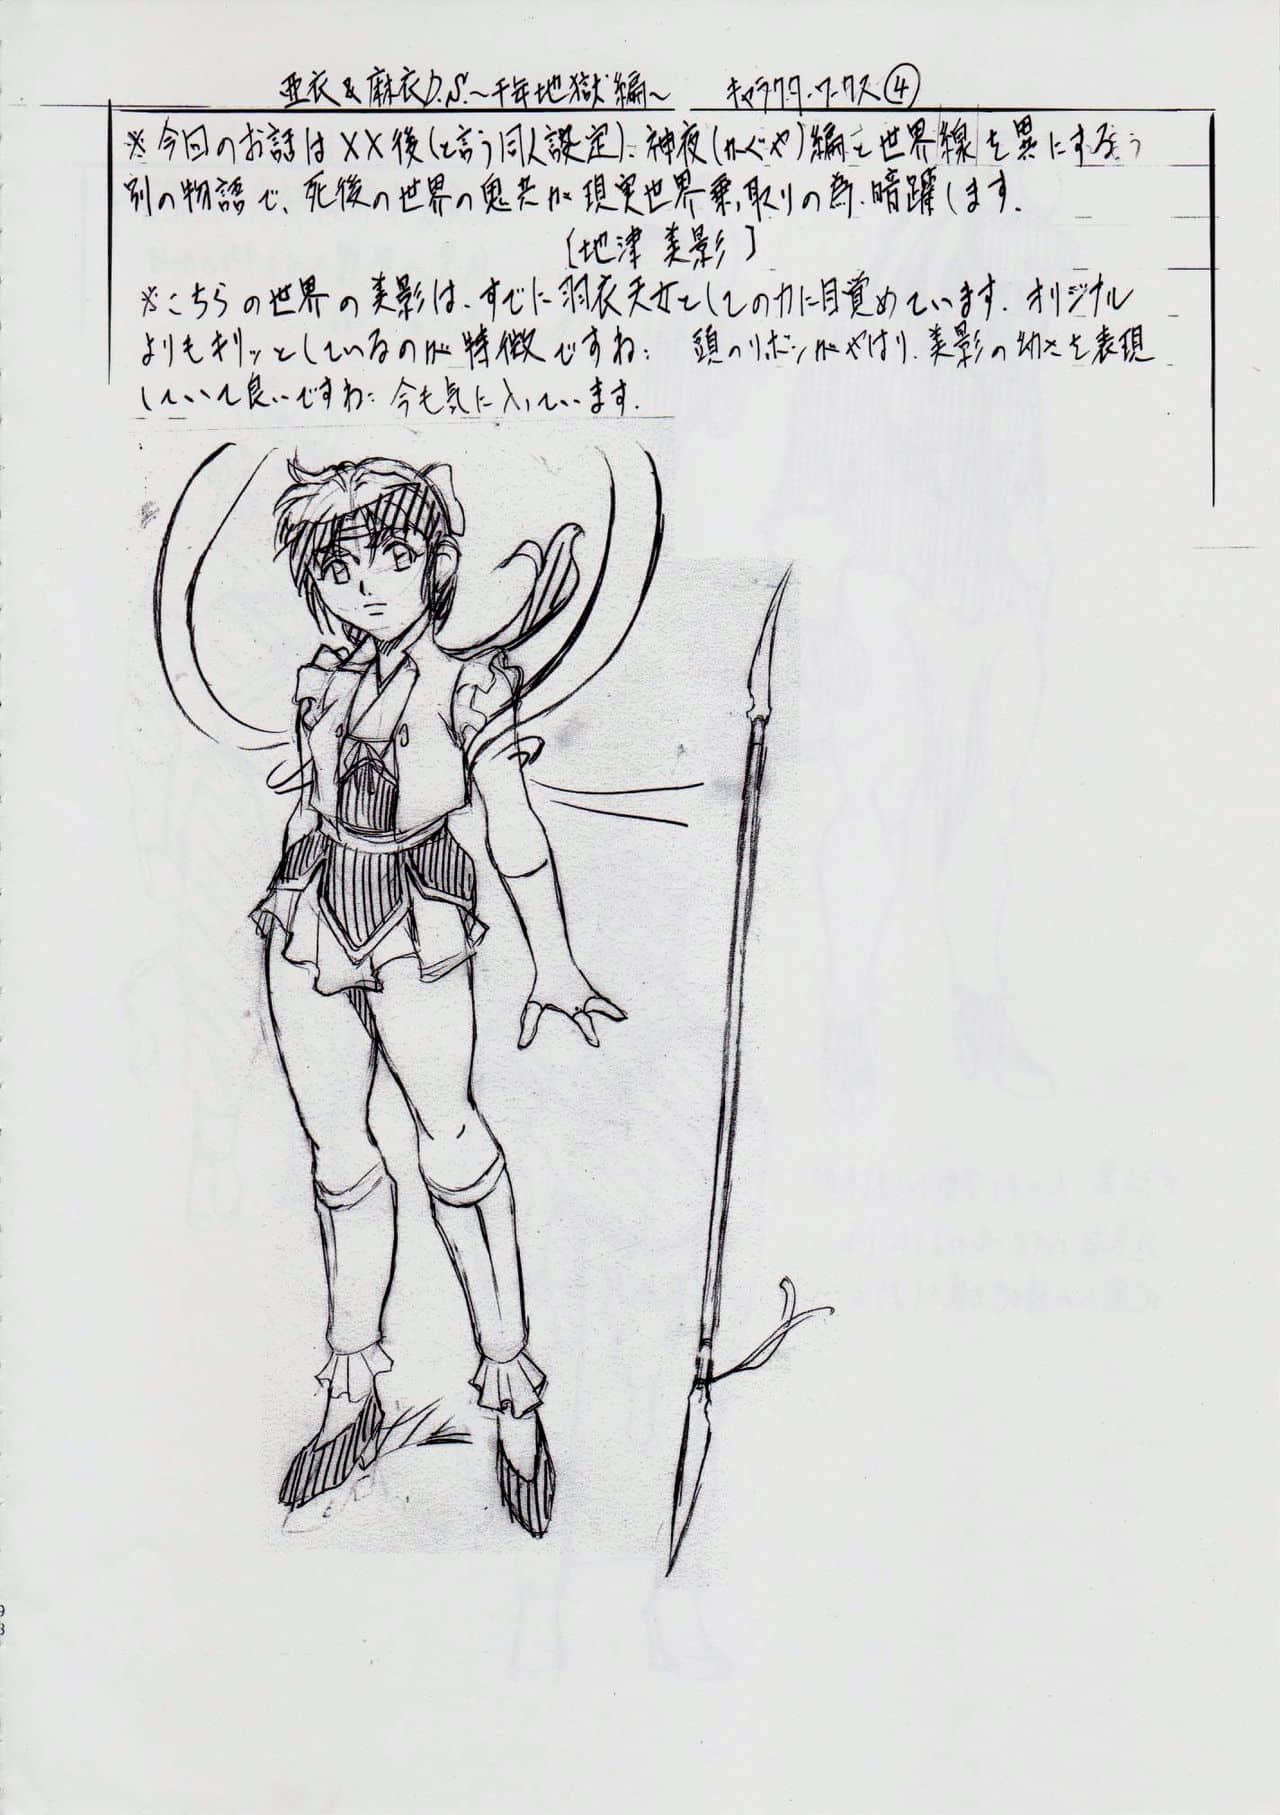 亜衣&麻衣D.S.~千年地獄編~ キャラクター・ワークス④
※今回のお話はXX後(と言う同人設定)、神夜(かぐや)編と世界線を異にするもう
別の物語で、死後の世界の鬼共が現実世界乗っ取りの為、暗躍します.
[地津 美影]
※こちらの世界の美影は、すでに羽衣天女としての力に目覚めています. オリジナル
よりもキリッとしているのが特徴ですね: 頭のリボンがやはり、美影の幼さを表現
していて良いですね: 今も気に入っています.
98